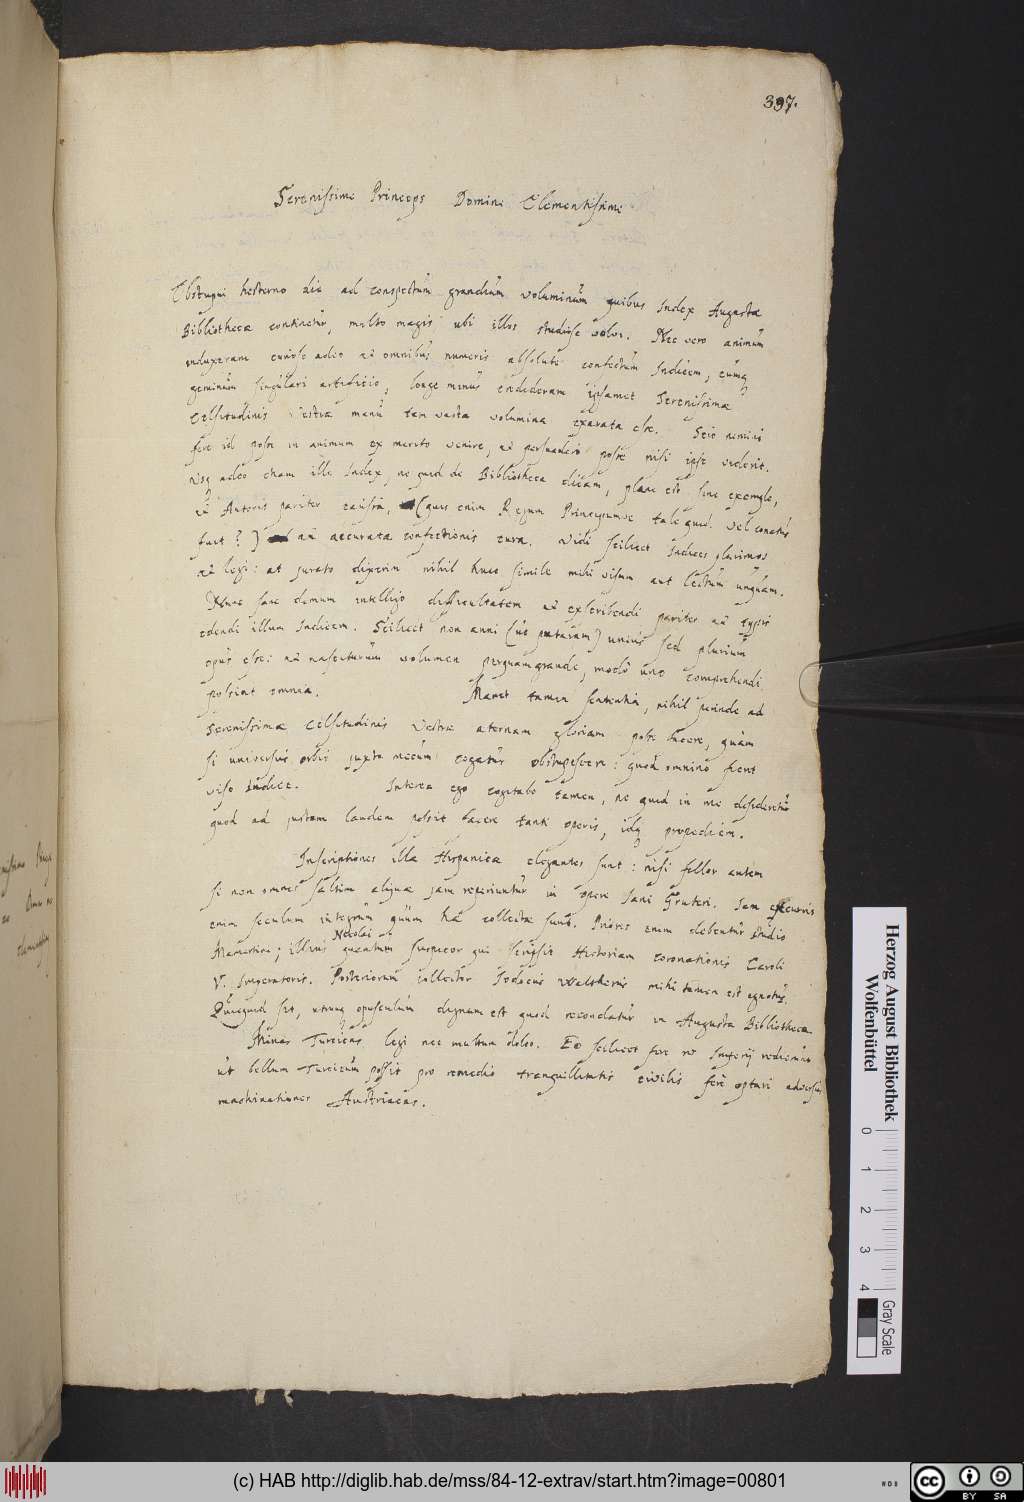 397.
Serenissime Princeps Domine Clementissime
Obstupui hesterno die ad conspectum grandium voluminum quibus Index Augustæ
Bibliothecæ continetur, multo magis ubi illos studiose volvi. Nec vero animum
induxeram credere adeo ac omnibus numeris absolute confectum Indicem, eumq
geminum singulari artificio, longe minus credideram ipsamet Serenissimæ
Celsitudinis Vestræ manu tam vasta volumina exarata esse. Scio nemini
fere id posse in animum ex merito venire, ac persuaderi posse nisi ipse viderit.
Usq adeo etiam ille Index, ne quid de Bibliotheca dicam, plane est sine exemplo,
ac Autoris pariter caussa, (quis enim Regum Principumve tale quid vel conatus
fuit?) ac accuratæ confectionis cura. Vidi scilicet Indices plurimos
ac legi: at jurato dixerim nihil huic simile mihi visum aut lectum unquam.
Nunc sane demum intelligo difficultatem ac exscribendi pariter ac typis
edendi illum Indicem. Scilicet non anni (ut putaram) unius sed plurium
opus esse: ac nasciturum volumen perquam grande, modo uno comprehendi
possint omnia. Manet tamen sententia, nihil perinde ad
Serenissimæ Celsitudinis Vestræ æternam gloriam posse facere, quam
si universus orbis juxta mecum cogatur obstupescere: quod omnino fiet
viso Indice. Interea ego cogitabo tamen, ne quid in me desideretur
quod ad justam laudem possit facere tanti operis, idq propediem.
Inscriptiones illæ Hispanicæ elegantes sunt: nisi fallor autem
si non omnes saltim aliquæ jam reperiuntur in opere Jani Gruteri. Jam
enim seculum integrum quum hæ collectæ sunt. Priores enim debentur studio
Nicolai
Mamerani; illius quantum suspicor qui scripsit Historiam coronationis Caroli
V. Imperatoris. Posteriorum collector Jodocus Waltherus mihi tamen est ignotus.
Quicquid sit, utrumq opusculum dignum est quod recondatur in Augusta Bibliotheca.
Minas Turcicas legi nec multum doleo. Eo scilicet fere res Imperij redierunt
ut bellum Turcicum possit pro remedio tranquillitatis civilis fere optari adversus
machinationes Austriacas.
Herzog August Bibliothek
Wolfenbüttel
0 1 2 3 4
Gray Scale
(c) HAB http://diglib.hab.de/mss/84-12-extrav/start.htm?image=00801
cc BY SA